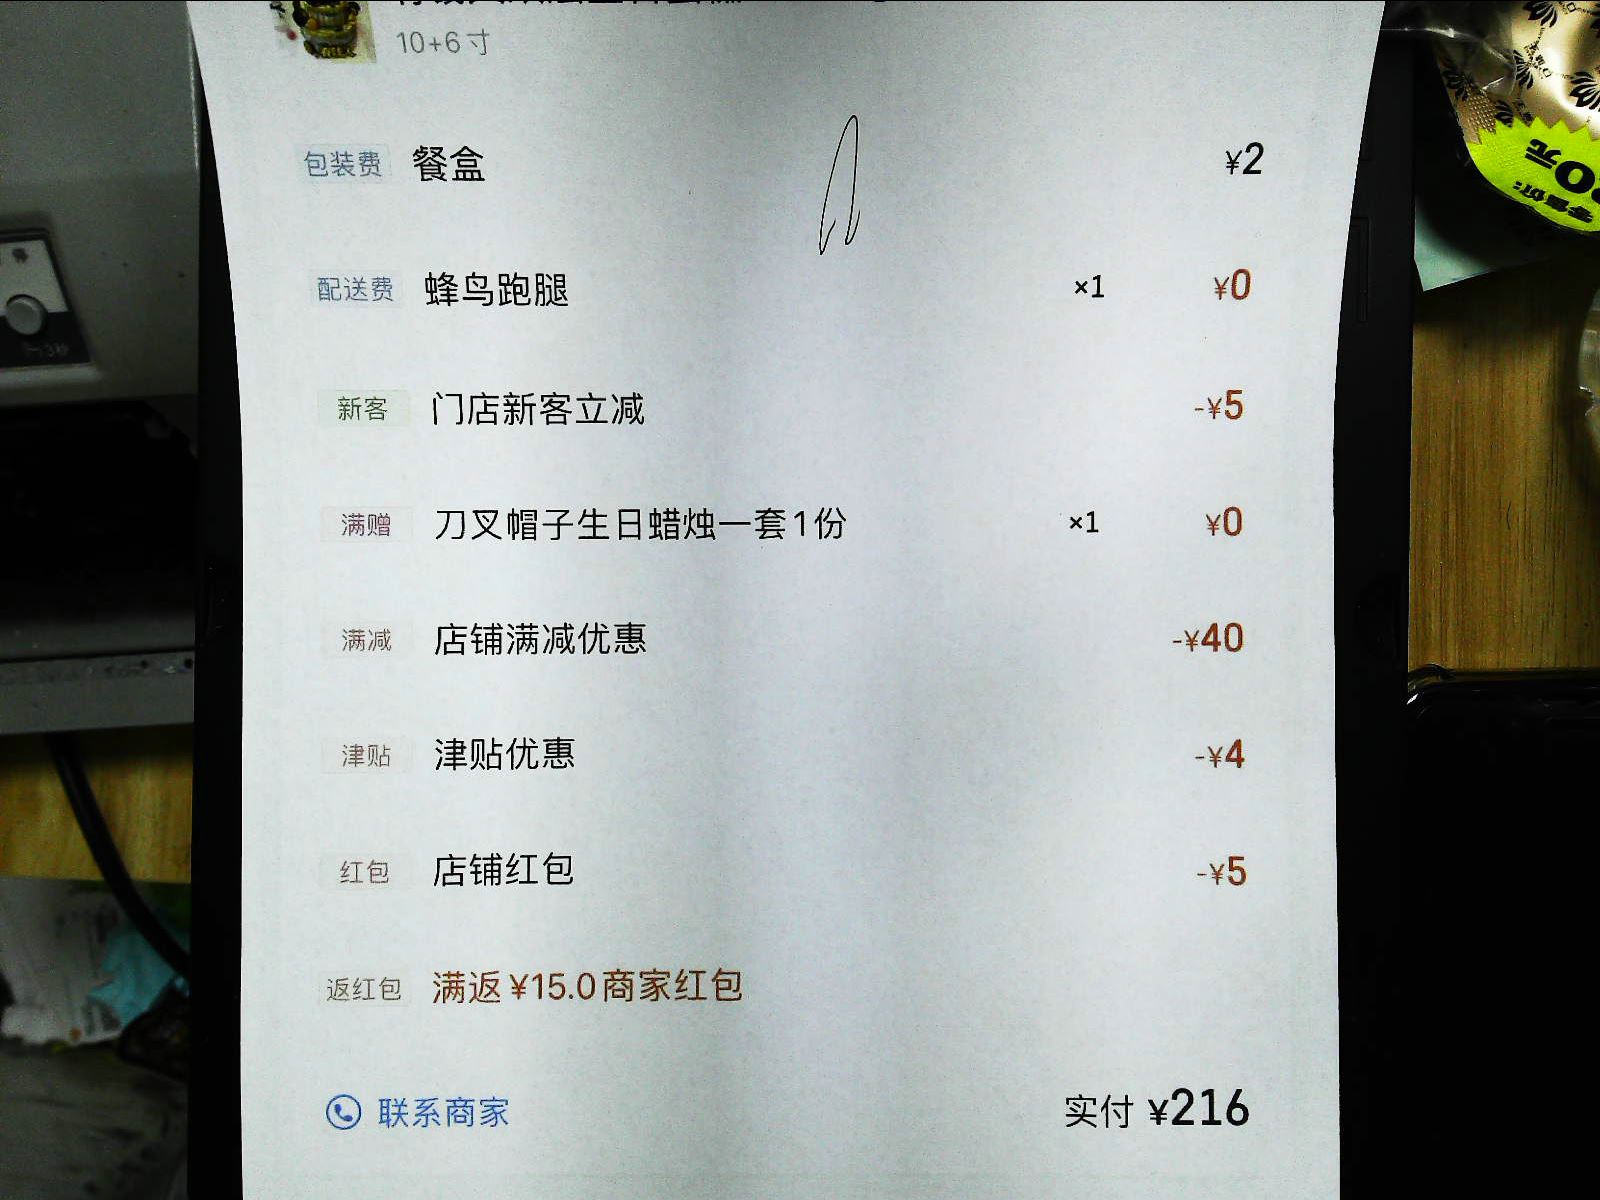 10+6寸
包装费 餐盒 ¥2
配送费 蜂鸟跑腿 ×1 ¥0
新客 门店新客立减 -¥5
满赠 刀叉帽子生日蜡烛一套1份 ×1 ¥0
满减 店铺满减优惠 -¥40
津贴 津贴优惠 -¥4
红包 店铺红包 -¥5
返红包 满返¥15.0商家红包
联系商家 实付 ¥216